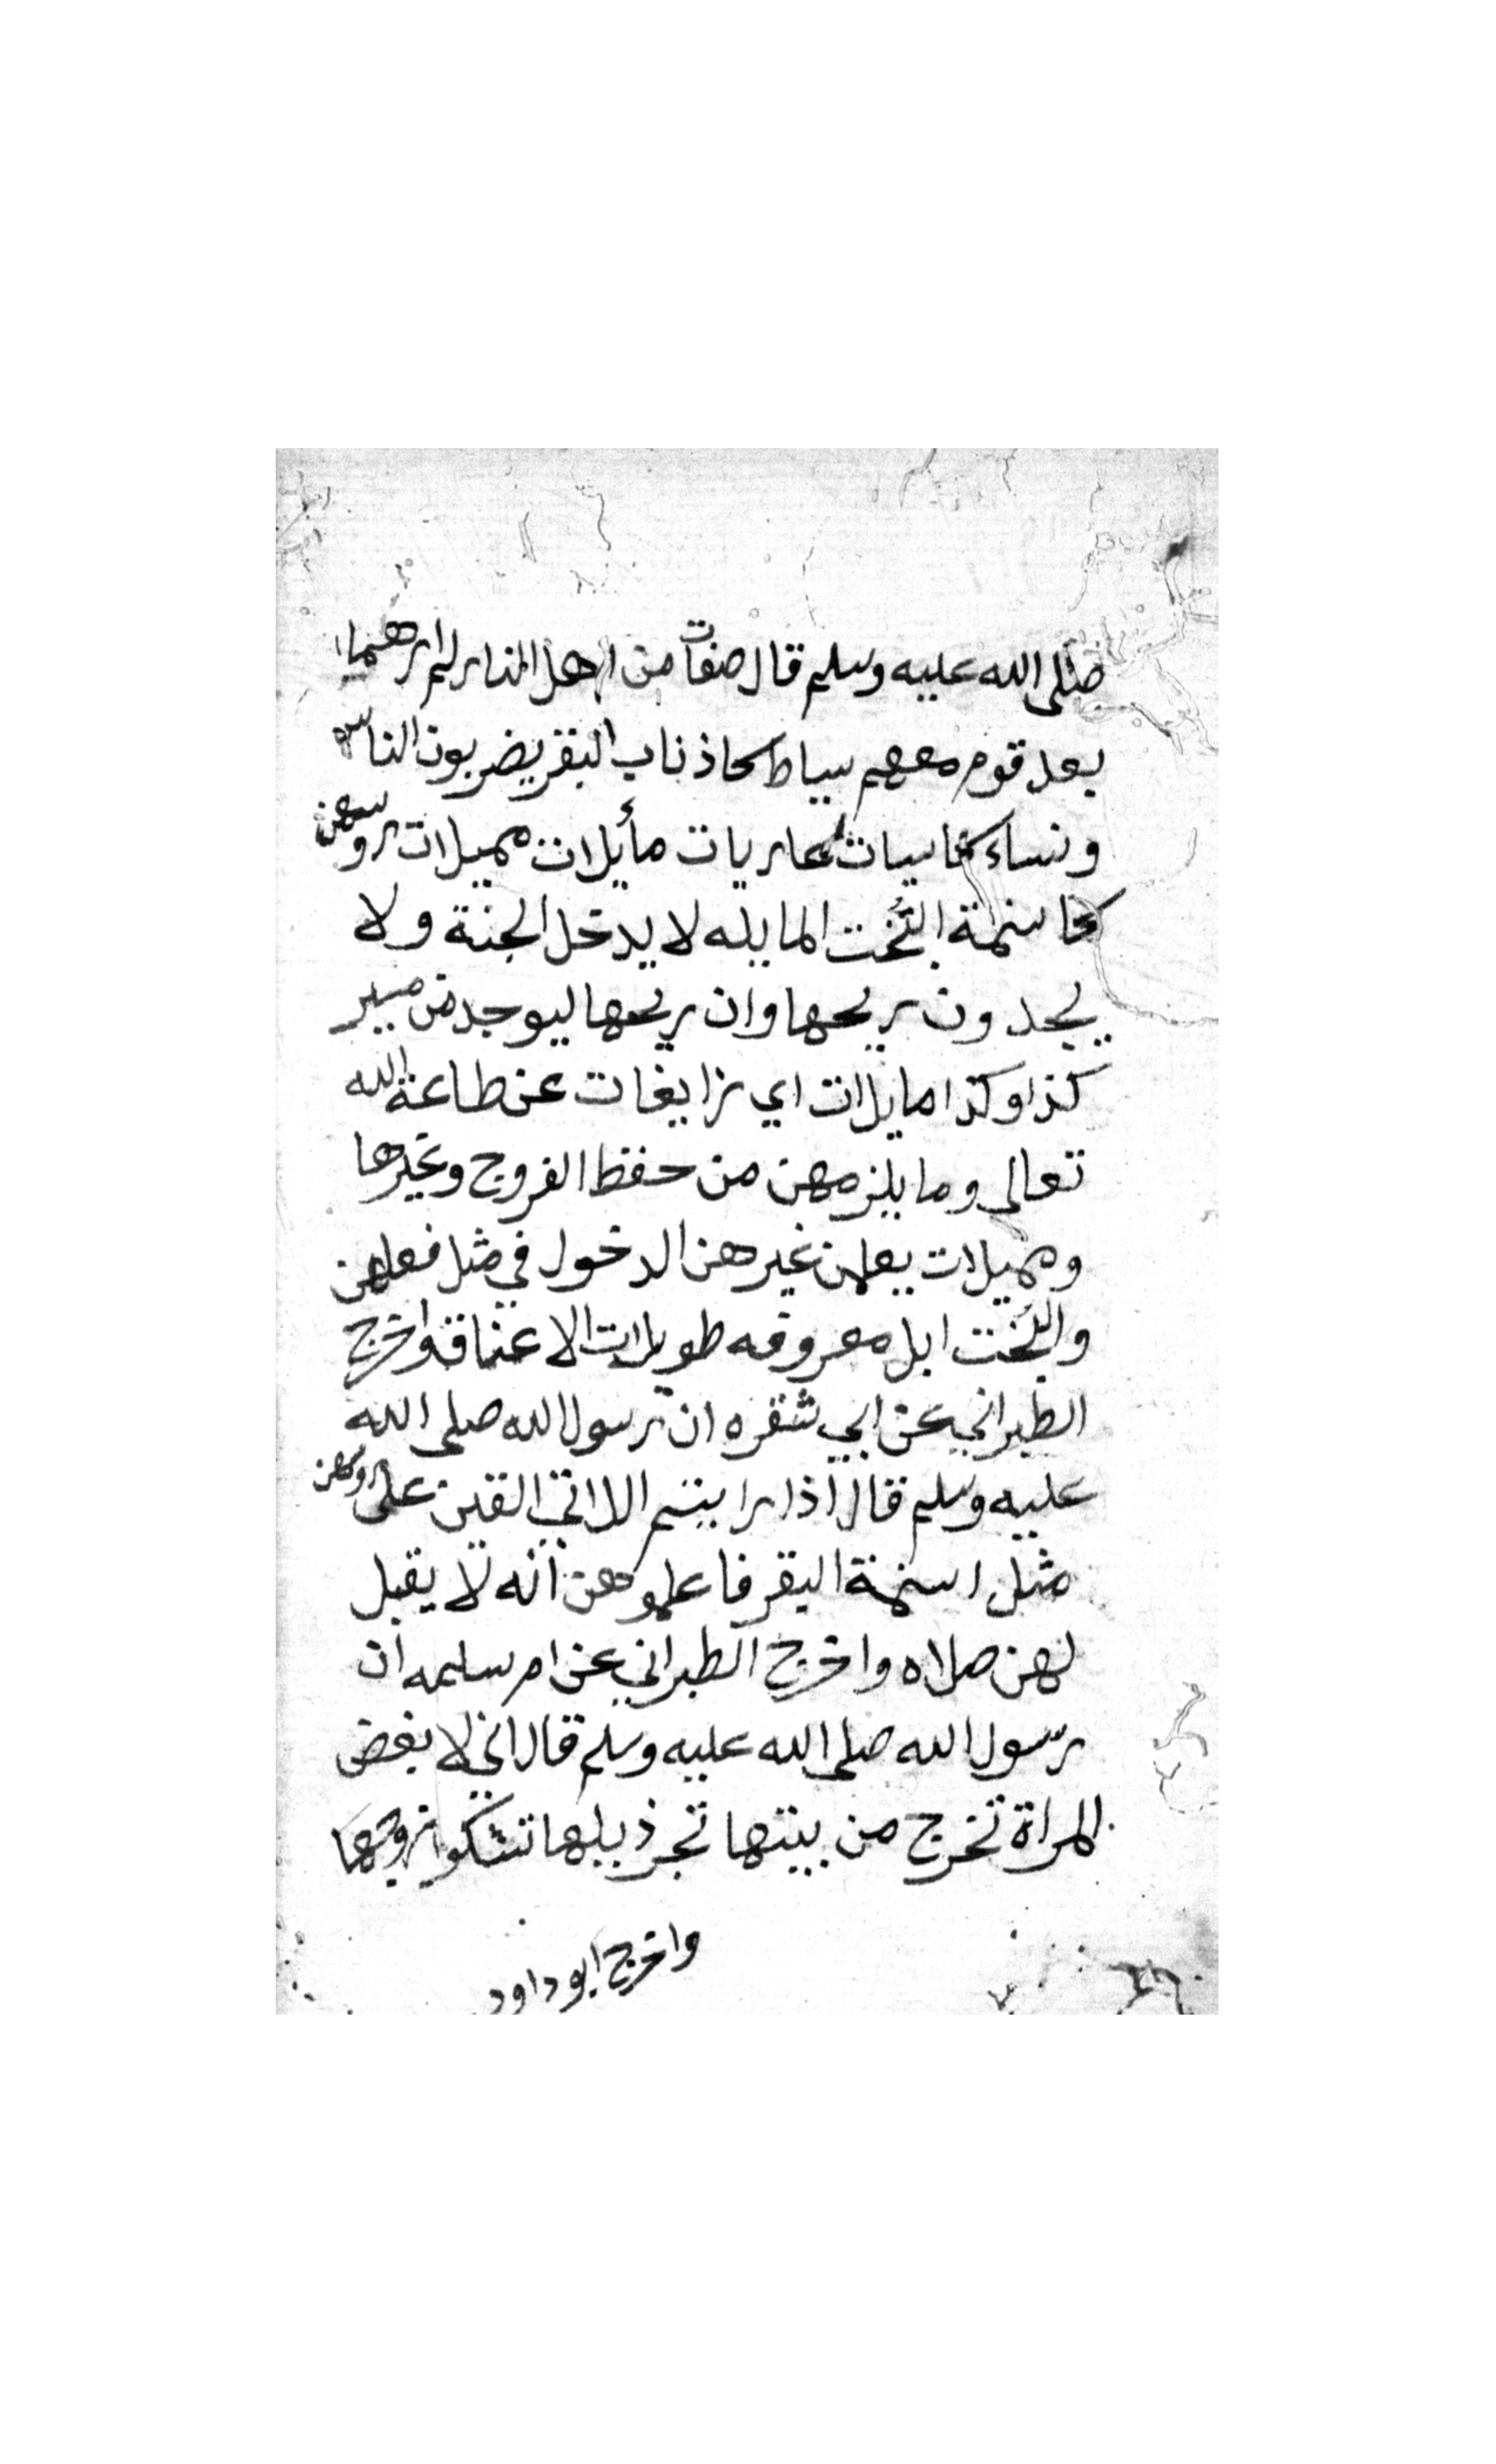 صلى الله عليه وسلم قال صنفان من اهل النار لم ارهما
بعد قوم معهم سياط كاذناب البقر يضربون الناس
ونساء كاسيات عاريات مأيلات مميلات روسهن
كاسنمة البُخت المايله لا يدخل الجنة ولا
يجدون ريحها وان ريحها ليوجد من مسير
كذا وكذا مايلات اي زايغات عن طاعة الله
تعالى وما يلزمهن من حفظ الفروج وغيرها
ومميلات يعلمن غيرهن الدخول في مثل فعلهن
والبُخت ابل معروفه طويلات الاعناق واخرج
الطبراني عن ابي شقره ان رسول الله صلى الله
عليه وسلم قال اذا رايتم اللاتي القين على روسهن
مثل اسنمة البقر فاعلموهن انه لا يقبل
لهن صلاه واخرج الطبراني عن ام سلمه ان
رسول الله صلى الله عليه وسلم قال اني لابغض
المراة تخرج من بيتها تجر ذيلها تشكوا زوجها
واخرج ابو داود